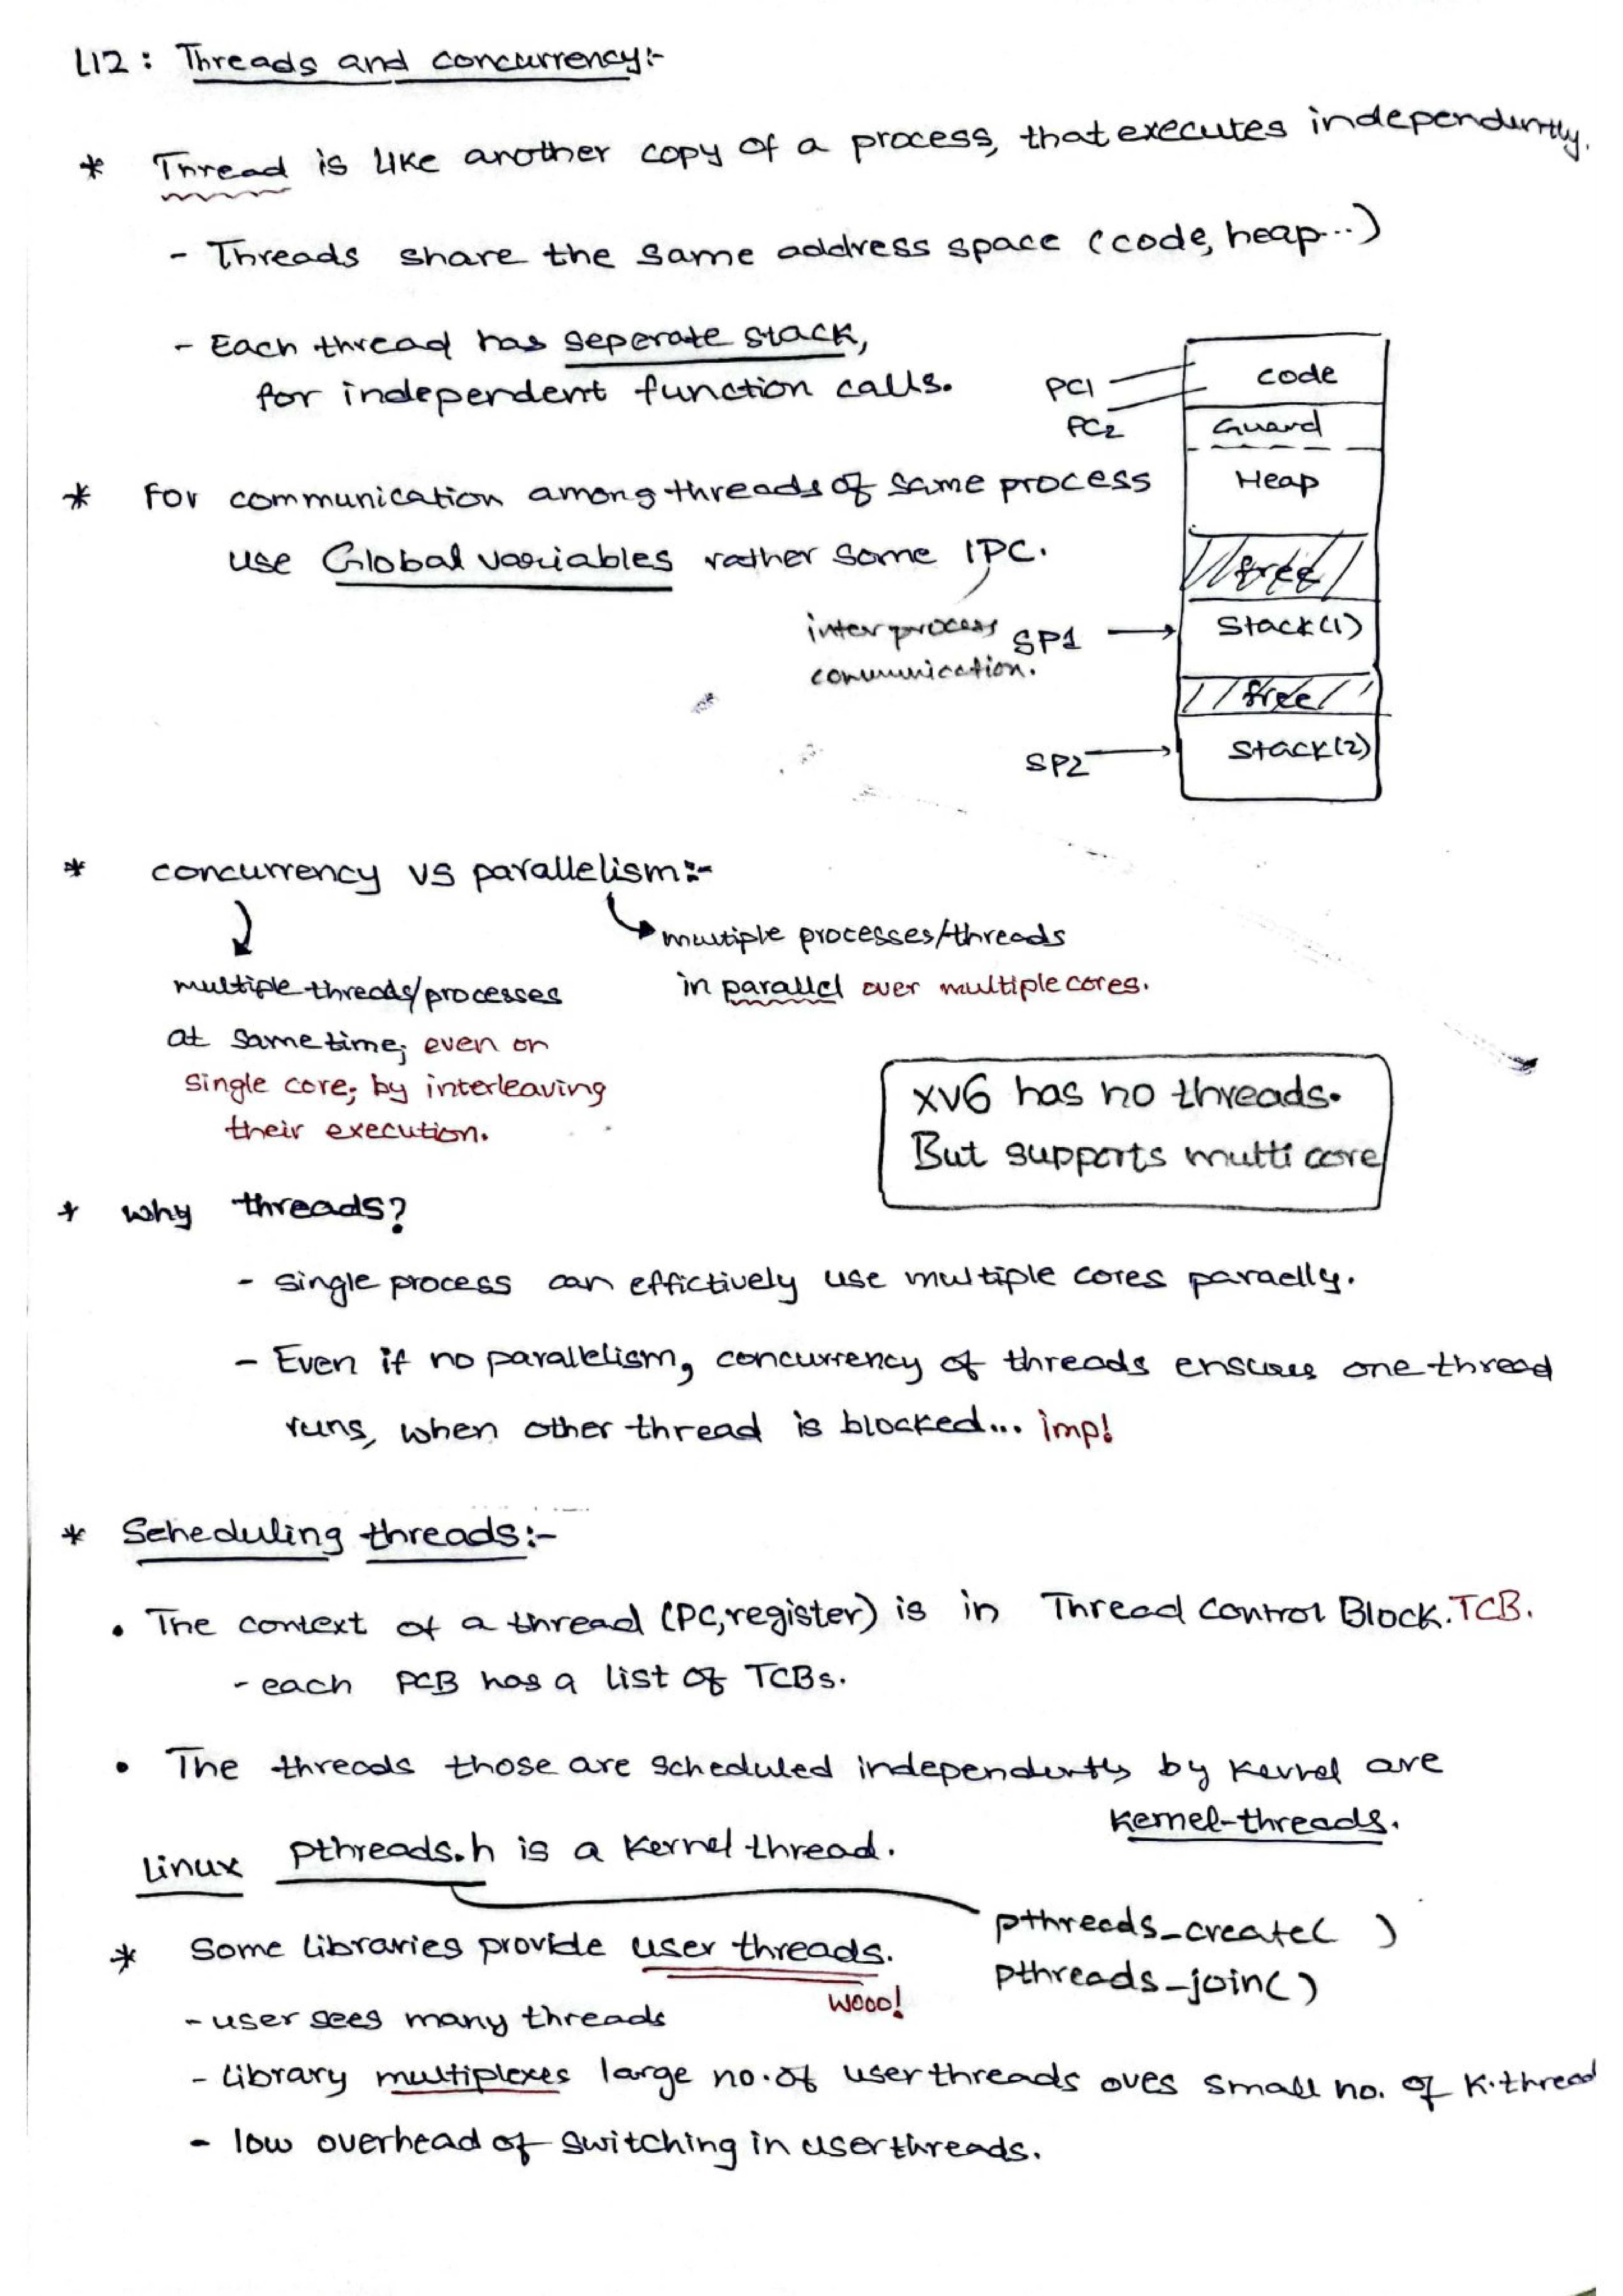 L12: Threads and concurrency:-
* Thread is like another copy of a process, that executes independently.
- Threads share the same address space (code, heap...)
- Each thread has seperate stack,
for independent function calls.
PC1
PC2
code
Guard
Heap
free
Stack(1)
free
Stack(2)
SP1
SP2
* For communication among threads of same process
use Global variables rather some IPC.
interprocess
communication.
* concurrency vs parallelism:-
multiple threads/processes
at same time; even on
single core; by interleaving
their execution.
multiple processes/threads
in parallel over multiple cores.
xv6 has no threads.
But supports multi core
* why threads?
- single process can effictively use multiple cores paraelly.
- Even if no parallelism, concurrency of threads ensures one thread
runs, when other thread is blocked... imp!
* Scheduling threads:-
• The context of a thread (PC, register) is in Thread Control Block. TCB.
- each PCB has a list of TCBs.
• The threads those are scheduled independently by Kernel are
kernel-threads.
Linux pthreads.h is a Kernel thread.
pthreads_create( )
pthreads_join()
* Some libraries provide user threads.
wooo!
- user sees many threads
- library multiplexes large no. of user threads over small no. of K.thread
- low overhead of switching in user threads.